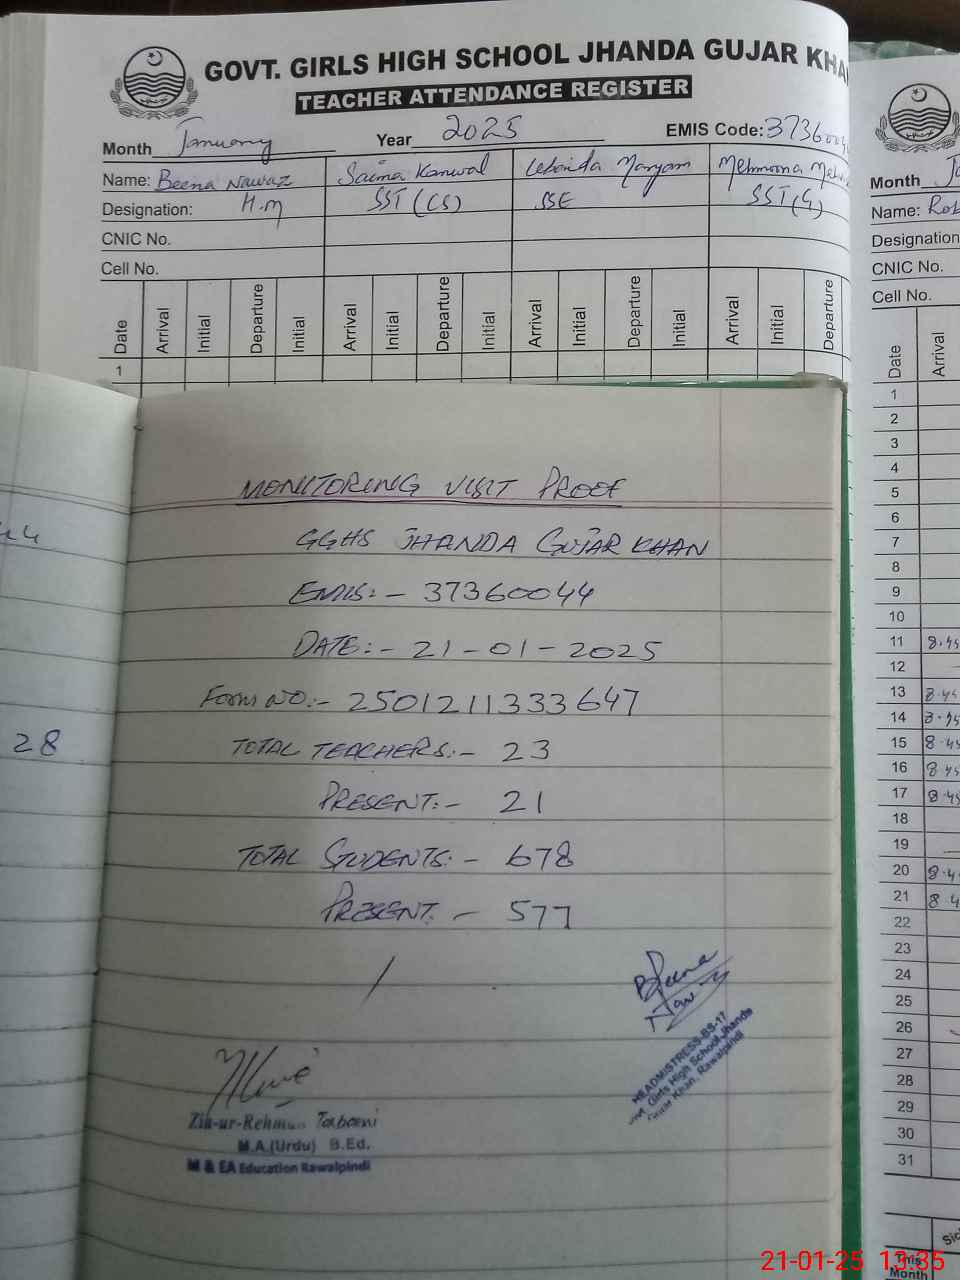 GOVT. GIRLS HIGH SCHOOL JHANDA GUJAR KHA
TEACHER ATTENDANCE REGISTER
Month January Year 2025 EMIS Code: 373600
Name: Beena Nawaz Saima Kanwal Maryam
Designation: H.M SST (CS) SSE SST(G)
CNIC No.
Cell No.
Date Arrival Initial Departure Initial Arrival Initial Departure Initial Arrival Initial Departure Initial Arrival Initial Departure
1
Month Ja
Name: Rob
Designation
CNIC No.
Cell No.
Date Arrival
1
2
3
4
5
6
7
8
9
10
11 8.45
12
13 8.45
14 8.45
15 8.45
16 8.45
17 8.45
18
19
20 8.4
21 8.4
22
23
24
25
26
27
28
29
30
31
This
Month
Sic
28
MONITORING VISIT PROOF
GGHS JHANDA GUJAR KHAN
EMIS:- 37360044
DATE:- 21-01-2025
Form NO:- 2501211333647
TOTAL TEACHERS:- 23
PRESENT:- 21
TOTAL STUDENTS:- 678
PRESENT:- 577
Beena
Nawaz
HEADMISTRESS-BS-17
Govt. Girls High School Jhanda
Gujar Khan, Rawalpindi
Zia-ur-Rehman Tabani
M.A.(Urdu) B.Ed.
M & EA Education Rawalpindi
21-01-25 13:35